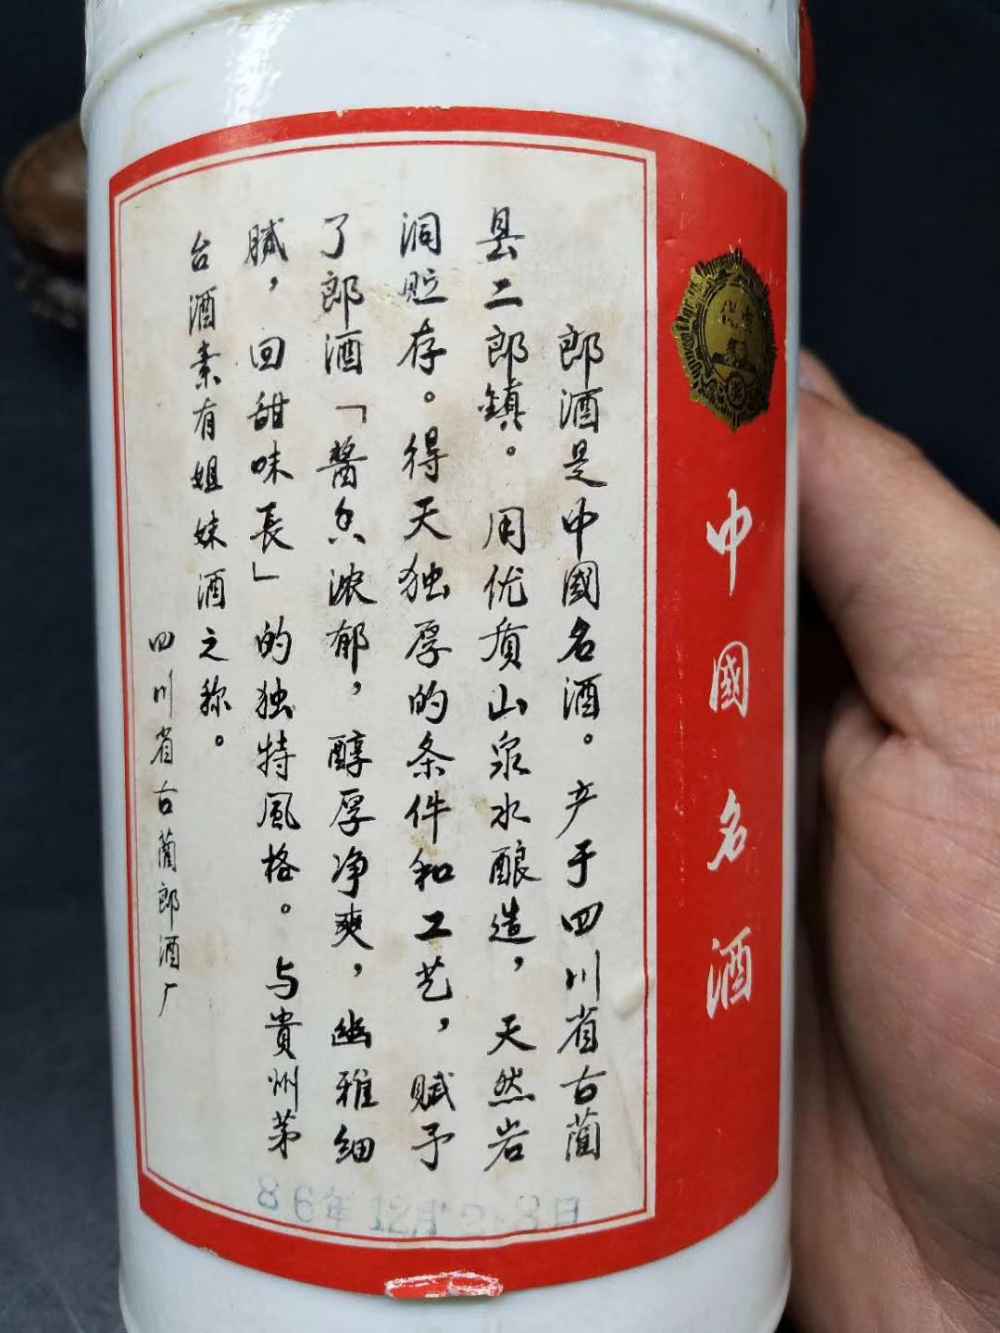 中國名酒
郎酒是中國名酒。产于四川省古藺
县二郎鎮。用优质山泉水酿造，天然岩
洞贮存。得天独厚的条件和工艺，赋予
了郎酒「醬香浓郁，醇厚净爽，幽雅细
腻，回甜味長」的独特風格。与貴州茅
台酒素有姐妹酒之称。
四川省古藺郎酒厂
86年12月23日